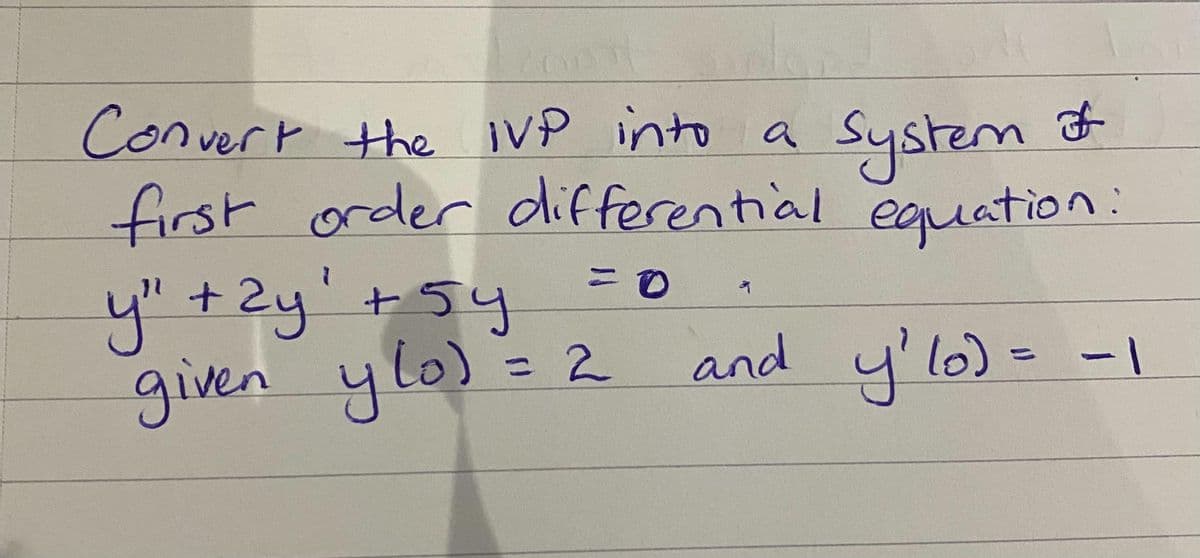 Convert the IVP into a system of
first order differential equation:
y" + 2y' + 5y = 0 ,
given y(0) = 2 and y'(0) = -1